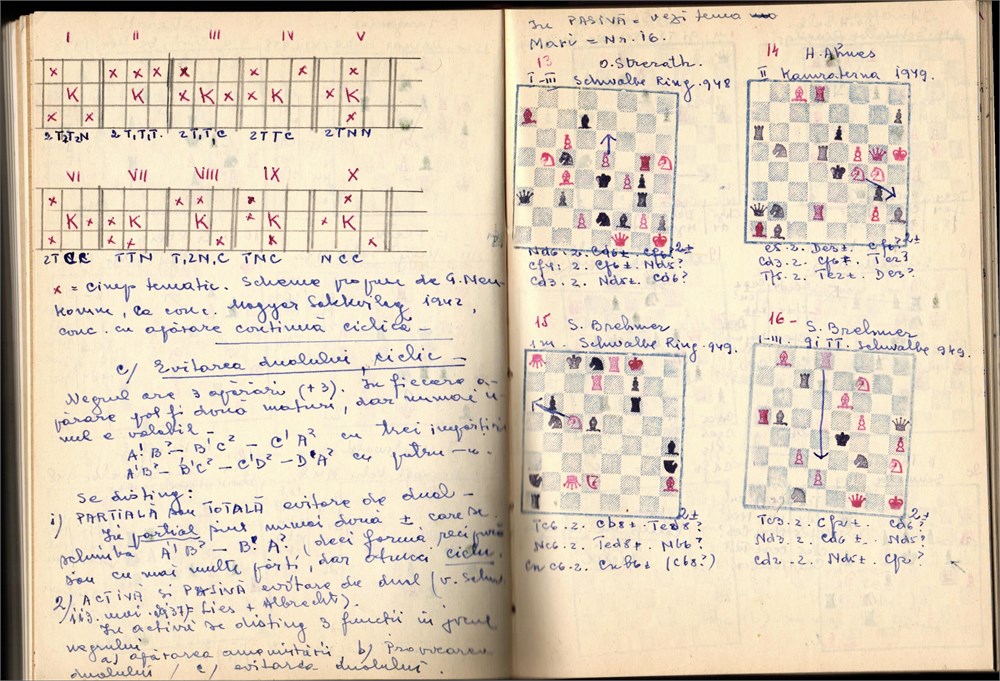 I II III IV V
x x x x x x x x
K K x K x K x K
x x x
2T2T2N 2T1T1T. 2T1T1C 2TTC 2TNN
VI VII VIII IX X
x x x x
K x K K x K x K
x x x x x
2TCC TTN T,2N,C TNC NCC
x = cimp tematic. Scheme propuse de G. Neu-
komm, la conc. Magyar Sakkvilag 1942,
conc. cu apărare continuă ciclică -
c/ Evitarea dualului, ciclic -
Negrul are 3 apărări (+3). În fiecare a-
părare pot fi două maturi, dar numai u-
nul e valabil -
A¹B²- B¹C² - C¹A² cu trei
A¹B²- B¹C² - C¹D² - D¹A² cu patru -"-
Se disting:
1) PARȚIALĂ sau TOTALĂ evitare de dual -
În parțial sunt numai două ± care se
schimbă A¹B² - B¹A². (deci formă reciprocă
sau cu mai multe părți, dar atunci ciclic.
2) ACTIVĂ și PASIVĂ evitare de dual (v.
113. mai 1937 Lies + Albrecht).
În activă se disting 3 funcții în jocul
negrului
a) apărarea amenințării, b) Provocarea
dualului / c/ evitarea dualului.
În PASIVĂ - vezi tema
Mari = Nr. 16.
13 O. Strerath.
I-III Schwalbe Ring. 948
2±
Nd6. 2. Cd6±
Cf4. 2. Cf6±. Nd5?
Cd3. 2. Nd5±. Cd6?
14 H. Ahues
II Kamraterna 1949.
2±
e5. 2. De5±. Cf6?
Cd3. 2. Cf6±. Te2?
Tf5. 2. Te2±. De5?
15 S. Brehmer
I m. Schwalbe Ring. 949.
2±
Tc6. 2. Cb8±. Ted8?
Nc6. 2. Ted8±. Nb6?
Cn c6. 2. Cxb6± (Cb8?)
16- S. Brehmer
I-III. și II. Schwalbe 949.
2±
Tc3. 2. Cf2±. Cd6?
Nd3. 2. Cd6±. Nd5?
Cd2. 2. Nd5±. Cf2?